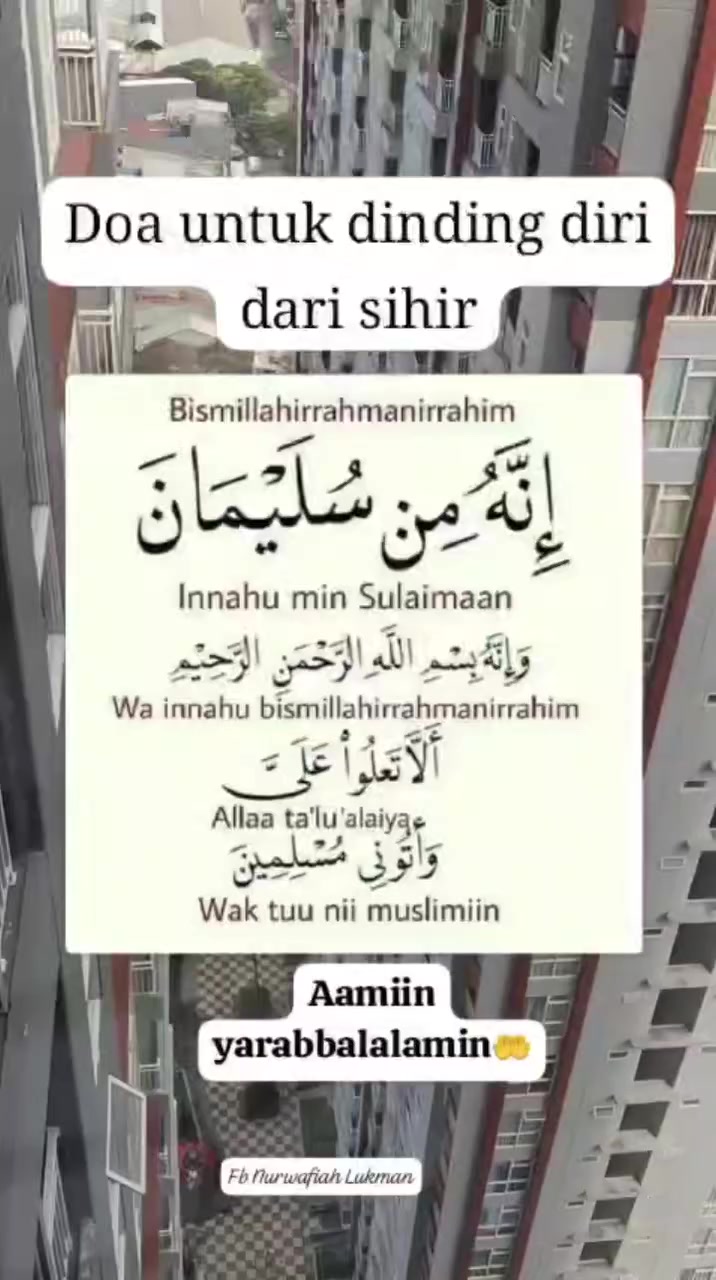 Doa untuk dinding diri
dari sihir
Bismillahirrahmanirrahim
إِنَّهُ مِن سُلَيْمَانَ
Innahu min Sulaimaan
وَإِنَّهُ بِسْمِ اللَّهِ الرَّحْمَنِ الرَّحِيْمِ
Wa innahu bismillahirrahmanirrahim
أَلَّا تَعْلُواْ عَلَىَّ
Allaa ta'lu'alaiya
وَأْتُونِي مُسْلِمِينَ
Wak tuu nii muslimiin
Aamiin
yarabbalalamin🤲
Fb Nurwafiah Lukman